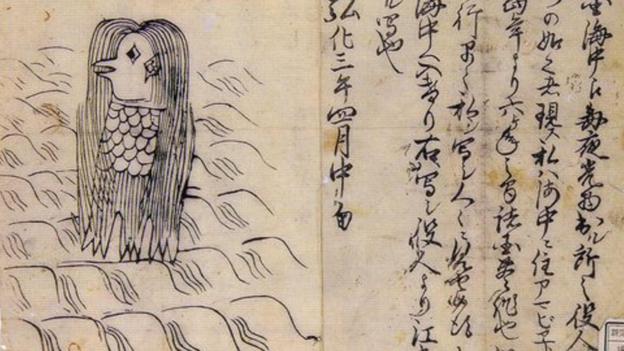 海中え毎夜光物出ル所之役人
づの如之者現ス私ハ海中ニ住アマビヱ
当年より六ヶ年之間諸国豊作也
行早々私写シ人々ニ見せ候
海中へ入けり右写シ役人より江
写也
弘化三年四月中旬